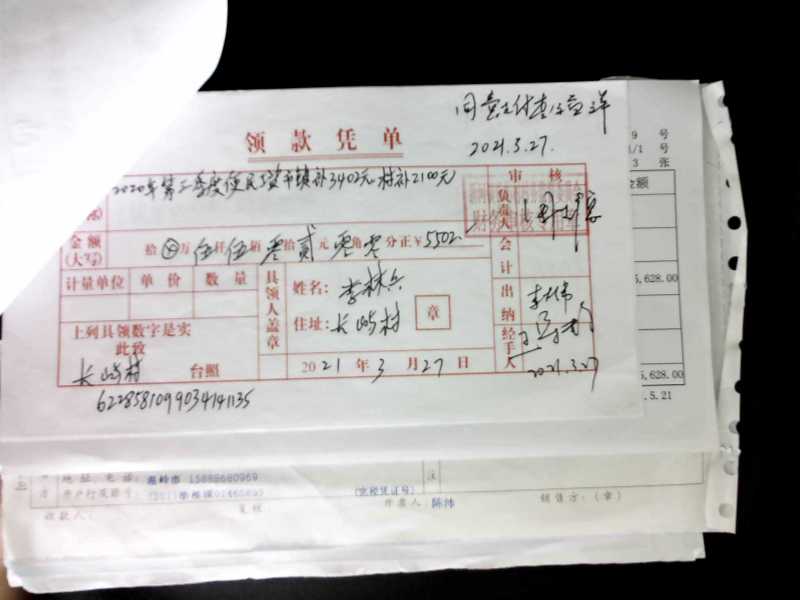 同意支付
2021.3.27.
领款凭单
2020年第二季度便民 镇补3402元 村补2100元
审核
负责人
金额
(大写)
拾 万 伍仟伍佰零拾贰元零角零分正￥5502
会计
计量单位 单价 数量
具领人盖章
姓名:李林兵
住址:长屿村
章
出纳
李伟
上列具领数字是实
此致
长屿村 台照
2021年3月27日
经手人
2021.3.27
6228581099034141135
9 号
1/1 号
3 张
金额
5,628.00
5,628.00
5.21
地址、电话: 温岭市 15888680969
开户行及账号:
(完税凭证号)
注
收款人:
复核
开票人 陈沛
销售方:(章)